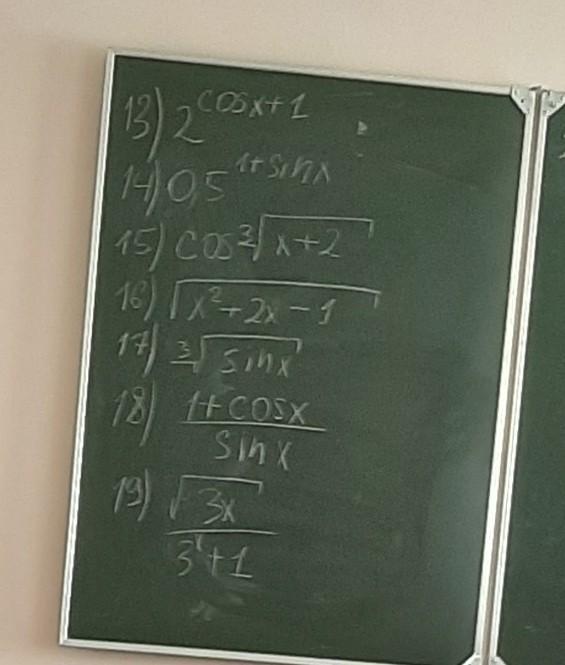 13) 2^{cosx+1}
14) 0,5^{1+sinx}
15) cos ∛(x+2)
16) √(x²+2x-1)
17) ∛(sinx)
18) (1+cosx)/(sinx)
19) √(3x)/(3^{x}+1)